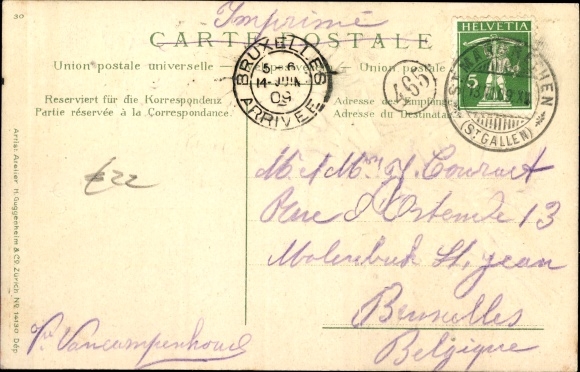 30
Imprimé
CARTE POSTALE
Union postale universelle
Union postale
Reserviert für die Korrespondenz
Partie réservée à la Correspondance.
Adresse des Empfängers
Adresse du Destinataire
BRUXELLES
5-6
14-JUIN
09
ARRIVÉE
463
HELVETIA
5
(ST. GALLEN)
£22
M. et Mme
Rue d'Ostende 13
Molenbeek St. Jean
Bruxelles
Belgique
Vancampenhoud
Artist. Atelier H. Guggenheim & Co. Zürich No. 14130 Dép.